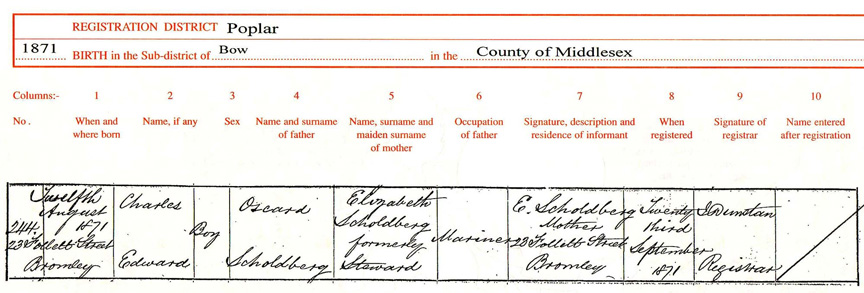 REGISTRATION DISTRICT Poplar
1871 BIRTH in the Sub-district of Bow in the County of Middlesex
Columns:- 1 2 3 4 5 6 7 8 9 10
No. When and where born Name, if any Sex Name and surname of father Name, surname and maiden surname of mother Occupation of father Signature, description and residence of informant When registered Signature of registrar Name entered after registration
244
Twelfth
August
1871
23 Follett Street
Bromley
Charles
Edward
Boy
Oscard
Scholdberg
Elizabeth
Scholdberg
formerly
Steward
Mariner
E. Scholdberg
Mother
23 Follett Street
Bromley
Twenty
third
September
1871
J Dunstan
Registrar